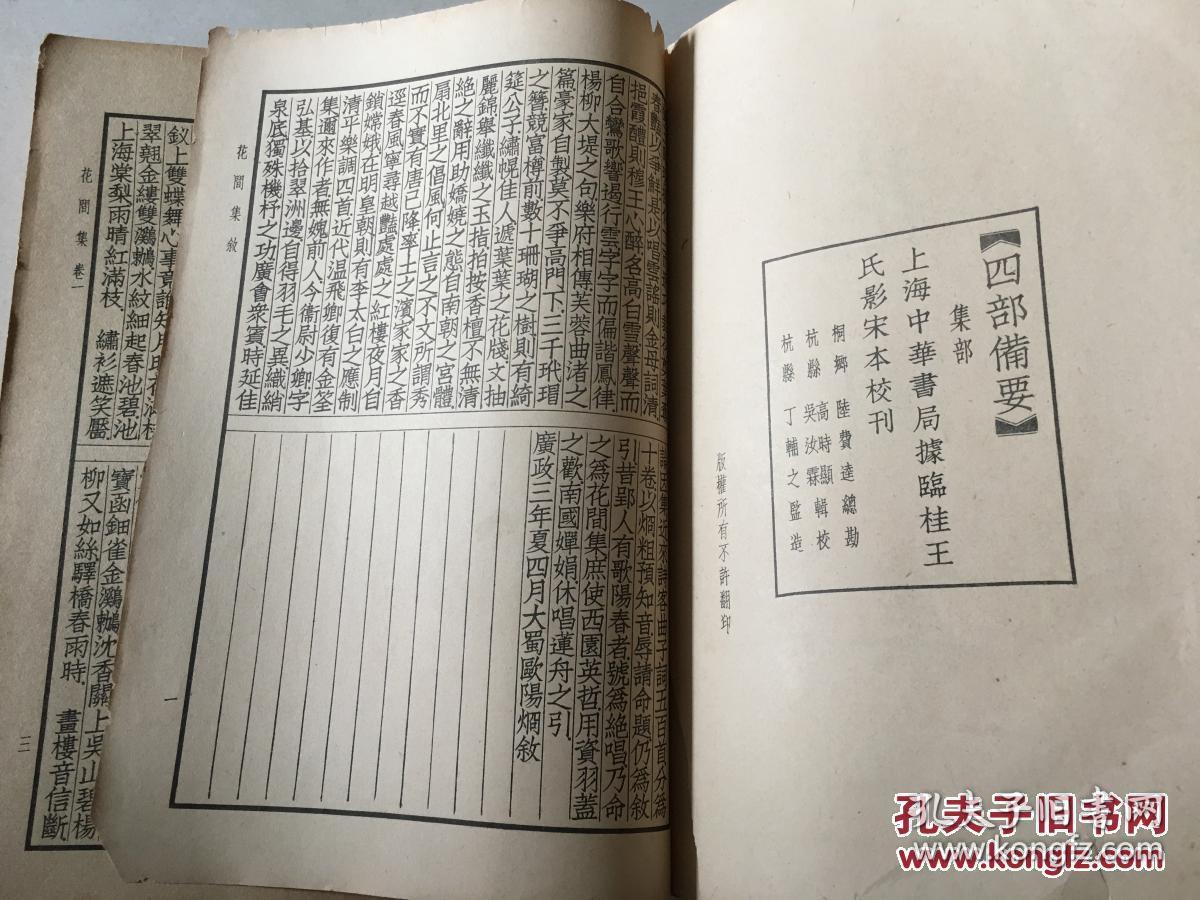 【四部備要】
集部
上海中華書局據臨桂王
氏影宋本校刊
桐鄉 陸費逵總勘
杭縣 高時顯 吳汝霖 輯校
杭縣 丁輔之監造
版權所有不許翻印
春艷以爭鮮是以唱雲謠則金母詞清
挹霞醴則穆王心醉名高白雪聲聲而
自合鸞歌響遏行雲字字而偏諧鳳律
楊柳大堤之句樂府相傳芙蓉曲渚之
篇豪家自製莫不爭高門下三千玳瑁
之簪競富樽前數十珊瑚之樹則有綺
筵公子繡幌佳人遞葉葉之花牋文抽
麗錦舉纖纖之玉指拍按香檀不無清
絕之辭用助嬌嬈之態自南朝之宮體
扇北里之倡風何止言之不文所謂秀
而不實有唐已降率土之濱家家之香
逕春風寧尋越豔處處之紅樓夜月自
鎖嫦娥在明皇朝則有李太白之應制
清平樂調四首近代温飛卿復有金筌
集邇來作者無媿前人今衞尉少卿字
弘基以拾翠洲邊自得羽毛之異織綃
泉底獨殊機杼之功廣會衆賓時延佳
論因集近來詩客曲子詞五百首分爲
十卷以烱粗預知音辱請命題仍爲敘
引昔郢人有歌陽春者號爲絕唱乃命
之爲花間集庶使西園英哲用資羽蓋
之歡南國嬋娟休唱蓮舟之引
廣政三年夏四月大蜀歐陽烱敘
花間集敘
一
釵上雙蝶舞心事竟誰知月
翠翹金縷雙鸂鶒水紋細起春池碧池
上海棠梨雨晴紅滿枝 繡衫遮笑靨
寶函鈿雀金鸂鶒沈香關上吳山碧楊
柳又如絲驛橋春雨時 畫樓音信斷
花間集 卷一
三
孔夫子旧书网
www.kongfz.com